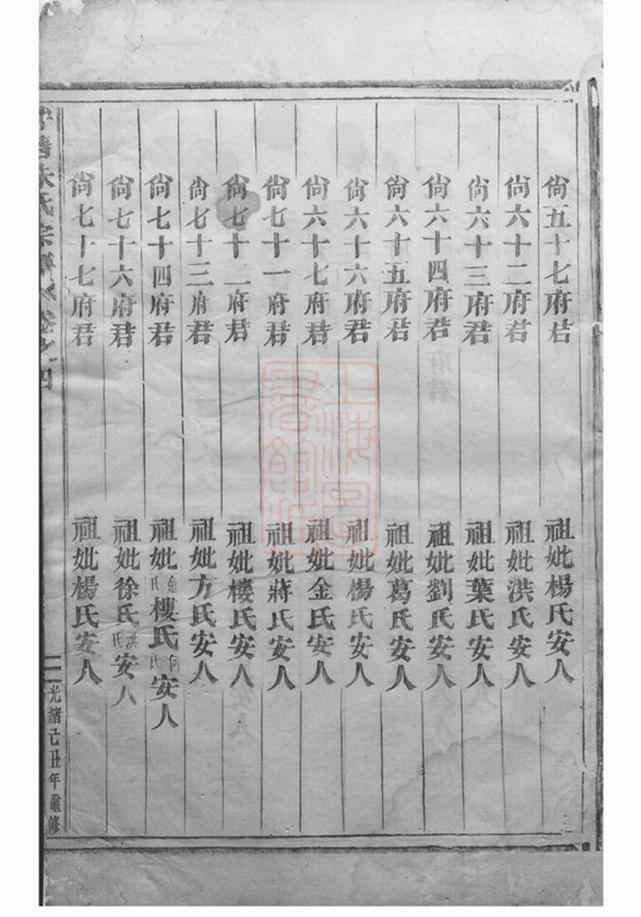 尙五十七府君 祖妣楊氏安人
尙六十二府君 祖妣洪氏安人
尙六十三府君 祖妣葉氏安人
尙六十四府君 祖妣劉氏安人
尙六十五府君 祖妣葛氏安人
尙六十六府君 祖妣楊氏安人
尙六十七府君 祖妣金氏安人
尙七十一府君 祖妣蔣氏安人
尙七十二府君 祖妣樓氏安人
尙七十三府君 祖妣方氏安人
尙七十四府君 祖妣氏樓氏何氏安人
尙七十六府君 祖妣徐氏洪氏安人
尙七十七府君 祖妣楊氏安人
朱氏宗譜 卷之四
光緒己丑年重修
上海圖書館藏